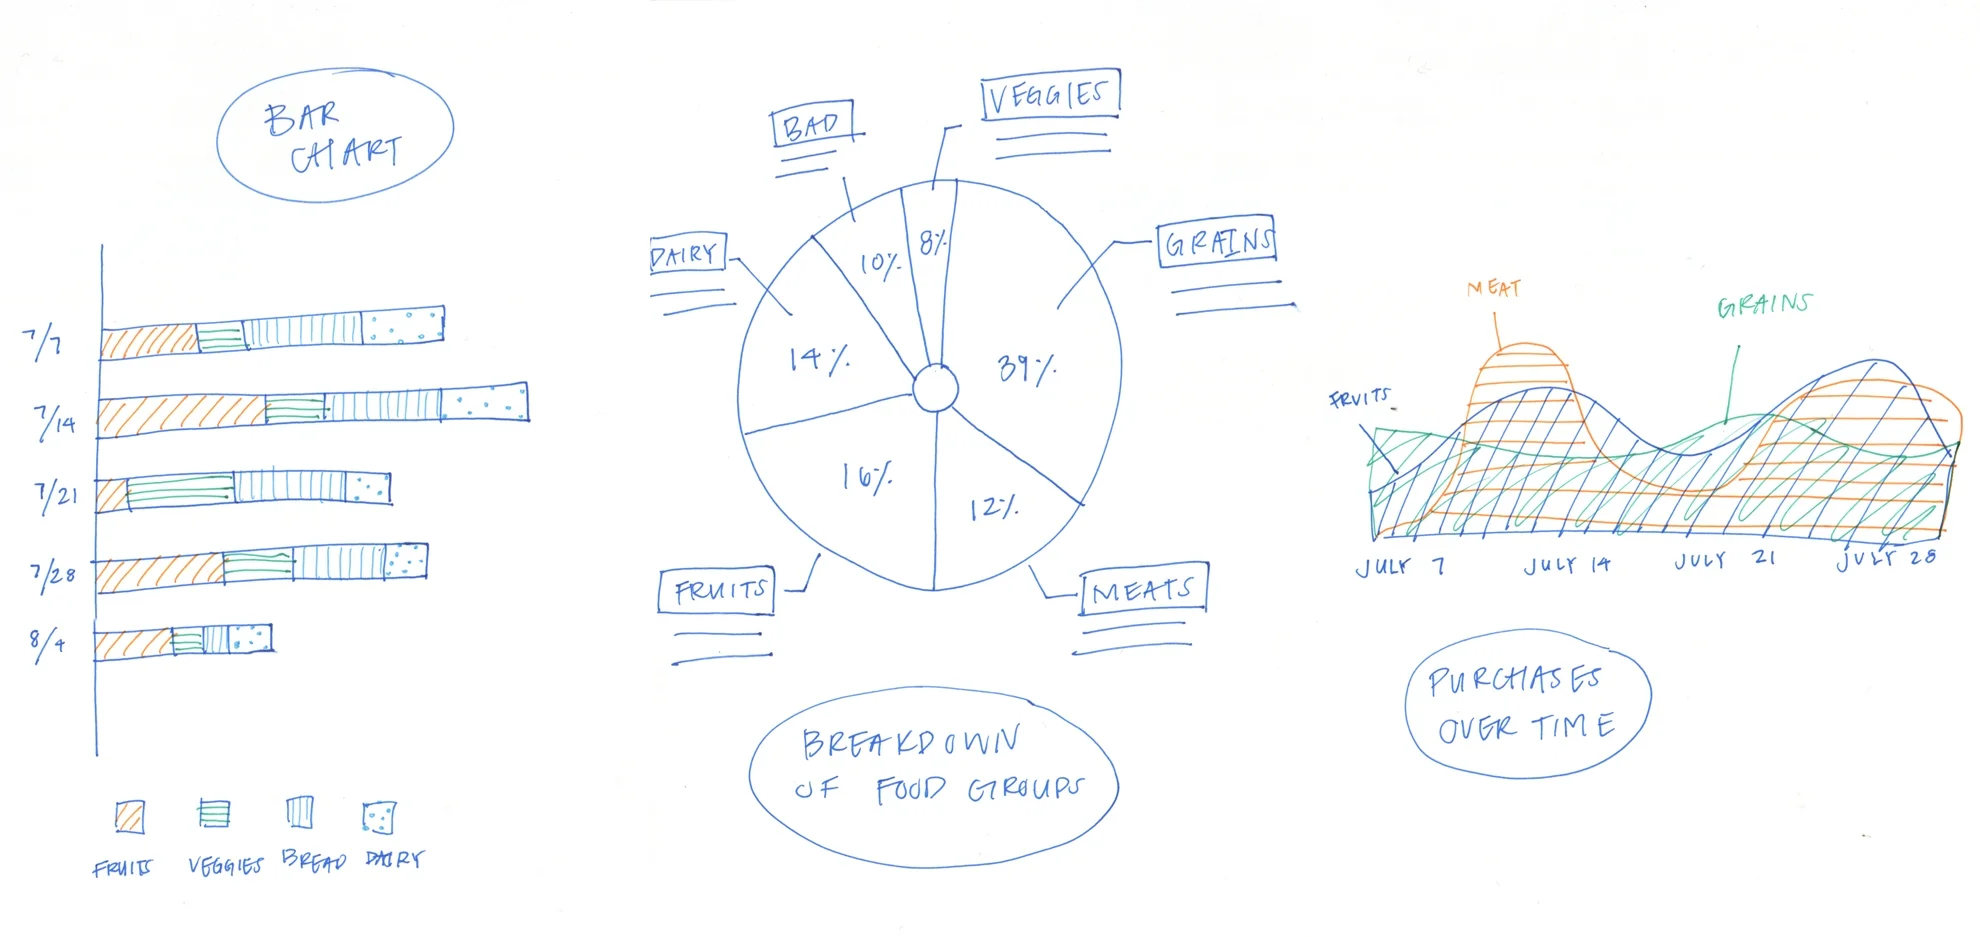 BAR
CHART
7/7
7/14
7/21
7/28
8/4
FRUITS VEGGIES BREAD DAIRY
BAD
VEGGIES
DAIRY
GRAINS
10%
8%
14%
39%
16%
12%
FRUITS
MEATS
BREAKDOWN
OF FOOD GROUPS
MEAT
GRAINS
FRUITS
JULY 7 JULY 14 JULY 21 JULY 28
PURCHASES
OVER TIME